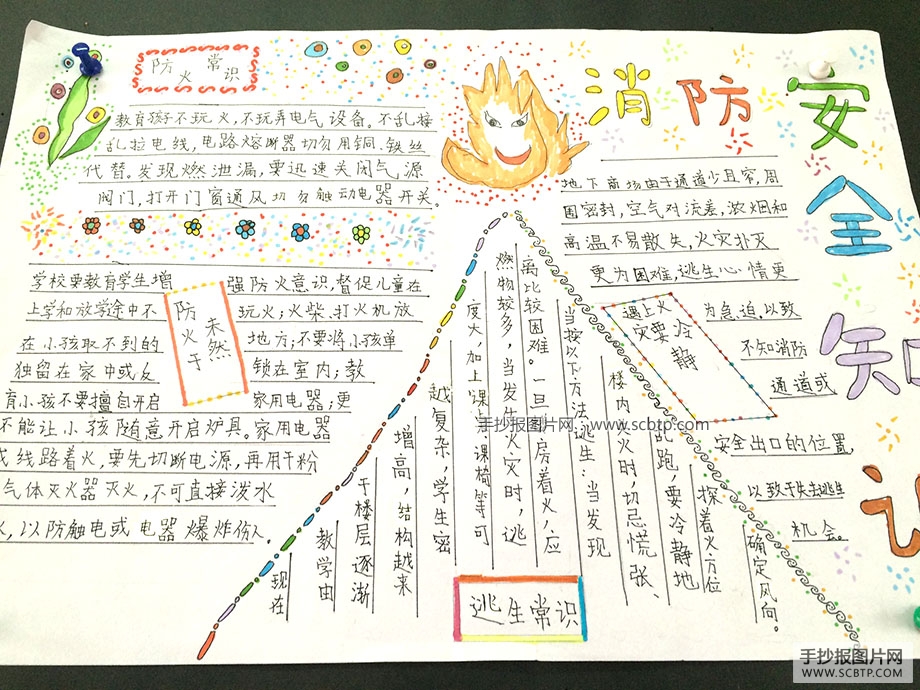 防火常识
消防安全知
教育孩子不玩火，不玩弄电气设备。不乱接
乱拉电线，电路熔断器切勿用铜、铁丝
代替。发现燃泄漏，要迅速关闭气源
阀门，打开门窗通风切勿触动电器开关。
学校要教育学生增强防火意识，督促儿童在
上学和放学途中不玩火；火柴、打火机放
在小孩取不到的地方；不要将小孩单
独留在家中或反锁在室内；教
育小孩不要擅自开启家用电器；更
不能让小孩随意开启炉具。家用电器
线路着火，要先切断电源，再用干粉
气体灭火器灭火，不可直接泼水
以防触电或电器爆炸伤人。
防火于
未然
现在
教学由
于楼层逐渐
增高，结构越来
越复杂，学生密
度大，加上课、课椅等可
燃物较多，当发生火灾时，逃
离比较困难。一旦房着火，应
当按以下方法逃生：当发现
楼内火时，切忌慌张、
乱跑，要冷静地
探着火方位
确定风向。
逃生常识
地下商场由于通道少且窄，周
围密封，空气对流差，浓烟和
高温不易散失，火灾扑灭
更为困难，逃生心情更
为急迫，以致
不知消防
通道或
安全出口的位置，
以致于失去逃生
机会。
遇上火
灾要冷
静
手抄报图片网 www.scbtp.com
手抄报图片网
WWW.SCBTP.COM